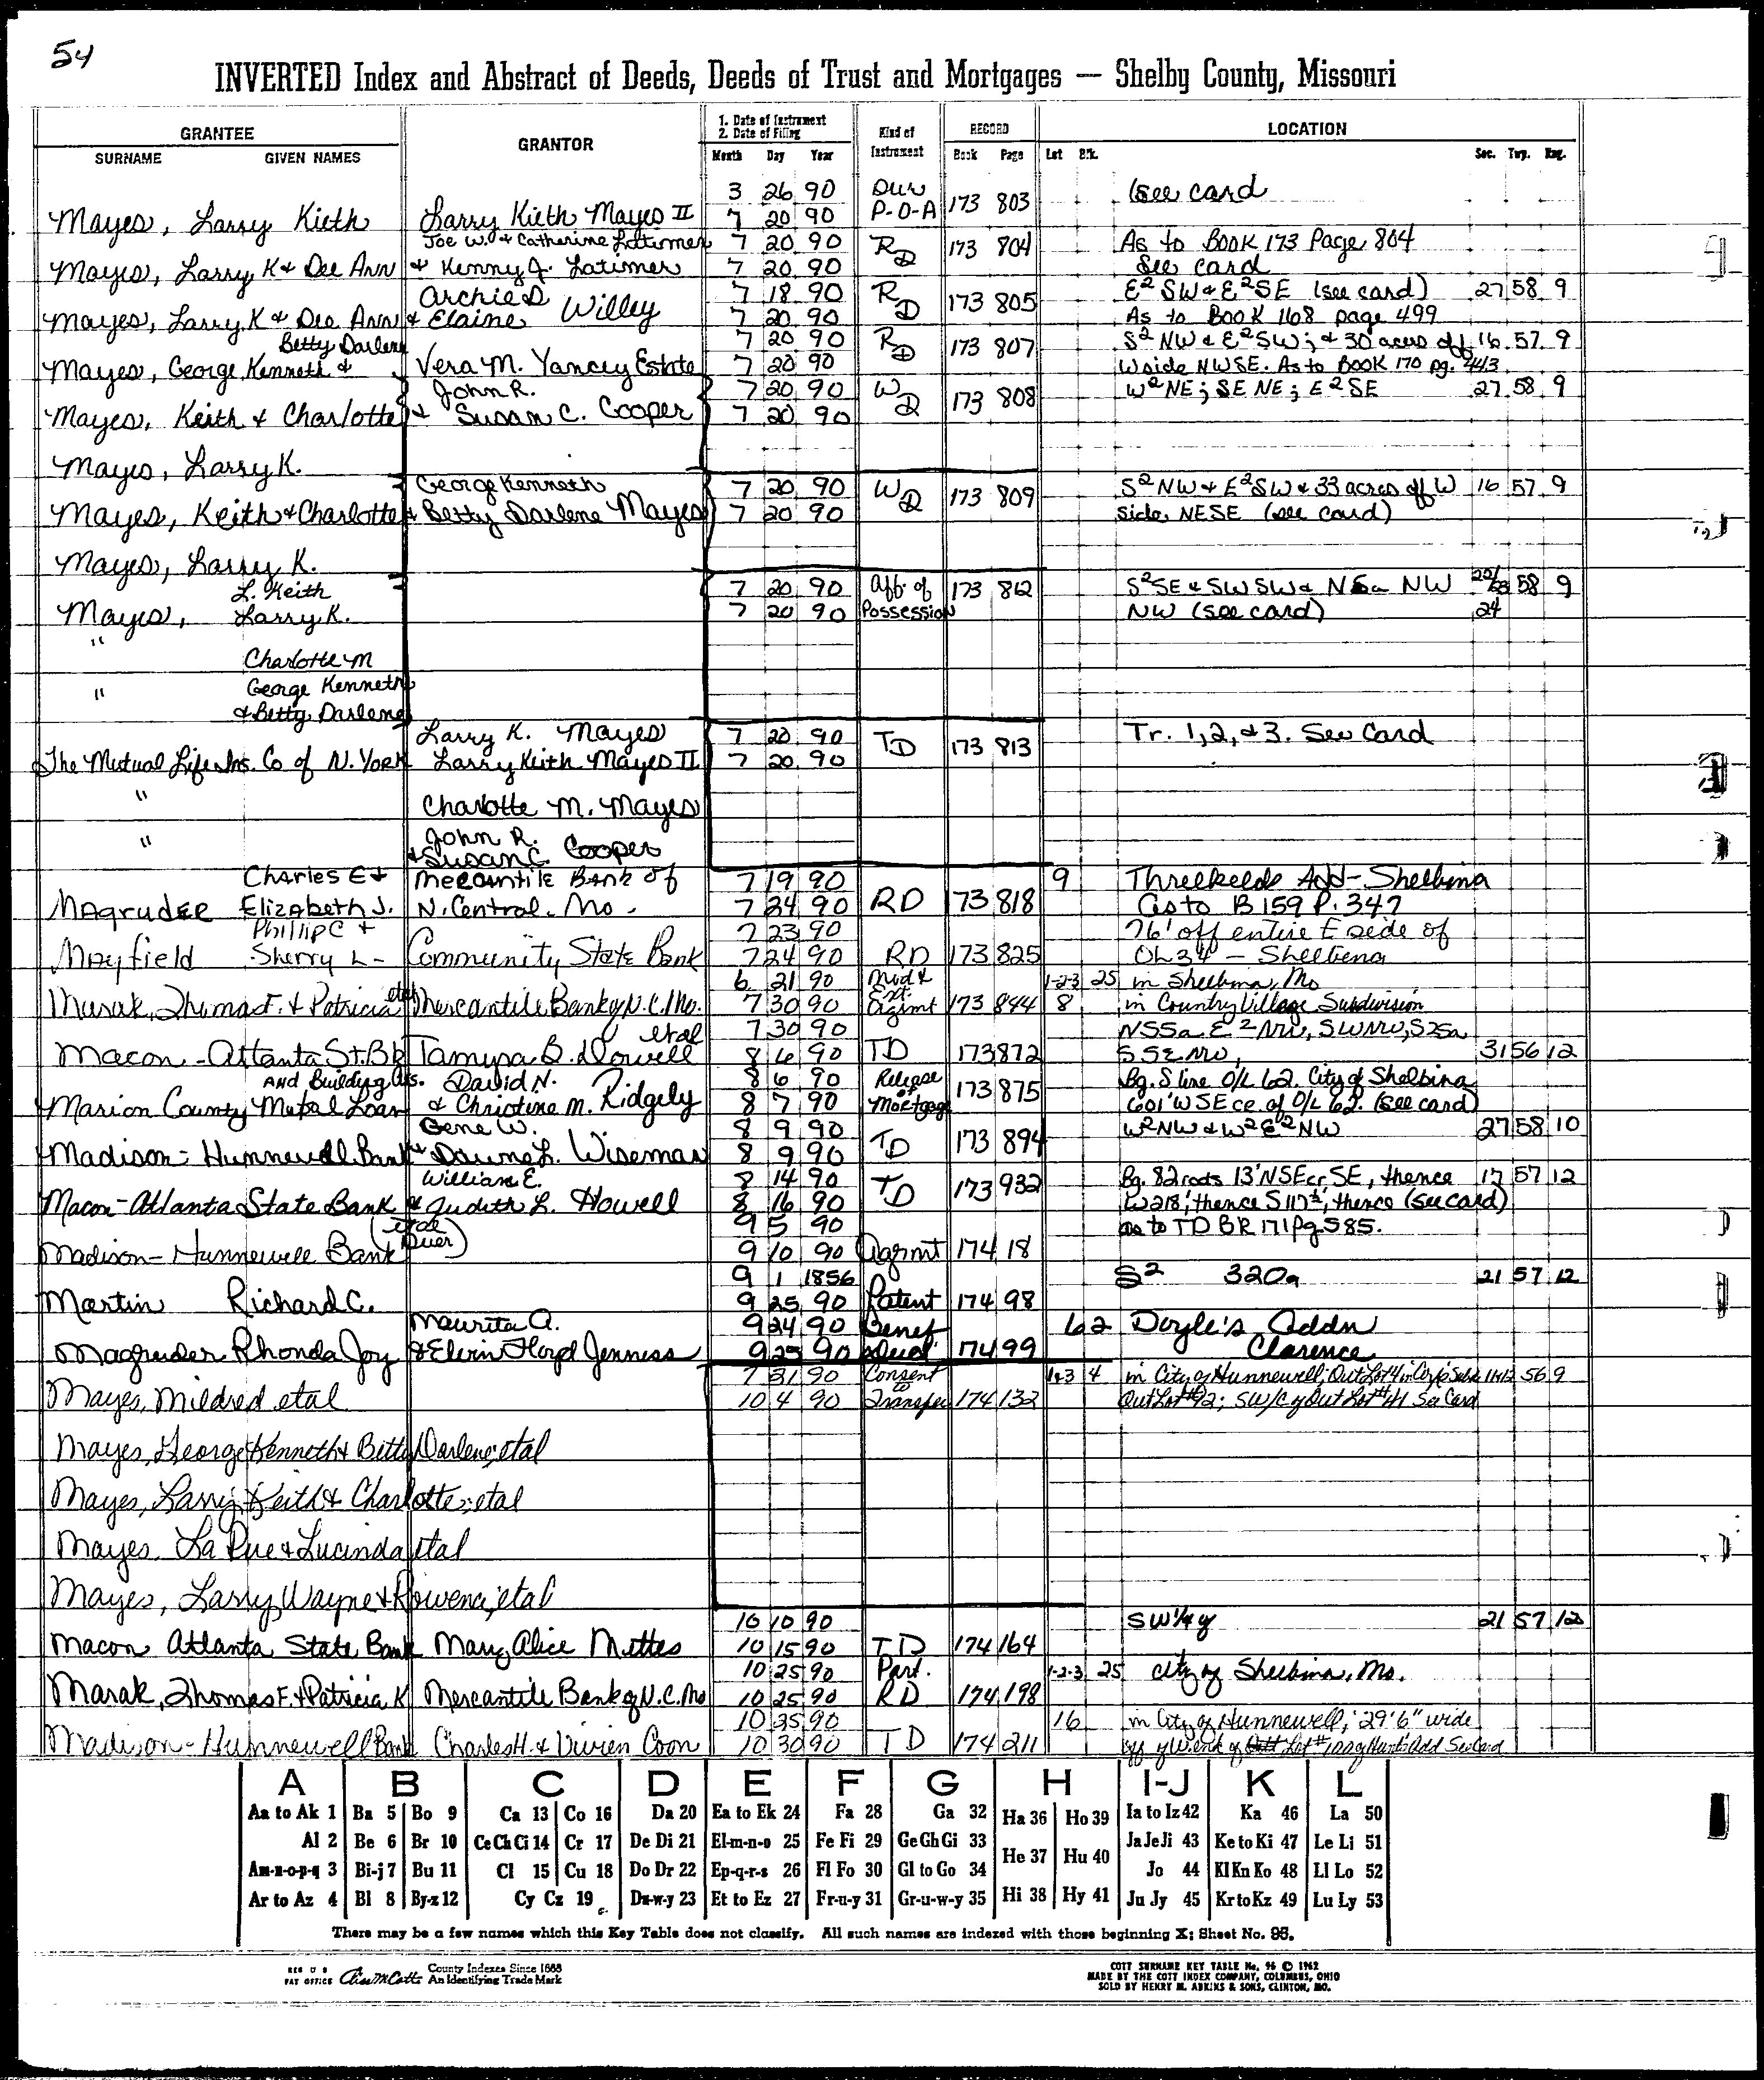 54
INVERTED Index and Abstract of Deeds, Deeds of Trust and Mortgages — Shelby County, Missouri
GRANTEE GRANTOR 1. Date of Instrument 2. Date of Filing Kind of Instrument RECORD LOCATION
SURNAME GIVEN NAMES Month Day Year Book Page Lot Blk. Sec. Twp. Rng.
3 26 90 Dur (see card
Mayes, Larry Kieth Larry Kieth Mayes II 7 20 90 P-O-A 173 803
Joe W. & Catherine Latimer 7 20 90 RD 173 804 As to Book 173 Page 804
Mayes, Larry K & Dee Ann & Kenny J. Latimer 7 20 90 See card
Archie D 7 18 90 RD 173 805 E² SW & E² SE (see card) 27 58 9
Mayes, Larry K & Dee Ann & Elaine Willey 7 20 90 As to Book 168 page 499
Betty Darlene 7 20 90 RD 173 807 S² NW & E² SW; & 30 acres off 16 57 9
Mayes, George Kenneth & Vera M. Yancey Estate 7 20 90 W side NWSE. As to Book 170 pg. 443
John R. 7 20 90 WD 173 808 W² NE; SE NE; E² SE 27 58 9
Mayes, Keith & Charlotte & Susan C. Cooper 7 20 90
Mayes, Larry K.
George Kenneth 7 20 90 WD 173 809 S² NW & E² SW & 33 acres off W 16 57 9
Mayes, Keith & Charlotte & Betty Darlene Mayes 7 20 90 side NESE (see card)
Mayes, Larry K.
L. Keith 7 20 90 Aff. of 173 812 S² SE & SW SW & NW 58 9
Mayes, Larry K. 7 20 90 Possession NW (see card) 24
" Charlotte M
" George Kenneth
& Betty Darlene
Larry K. Mayes 7 20 90 TD 173 813 Tr. 1, 2, & 3. See Card
The Mutual Life Ins. Co of N. York Larry Keith Mayes II 7 20 90
" Charlotte M. Mayes
" John R.
& Susan C. Cooper
Charles E & Mercantile Bank of 7 19 90 9 Threlkelds Add - Shelbina
Magruder Elizabeth J. N. Central. Mo. 7 24 90 RD 173 818 As to B 159 P. 347
Phillip C & 7 23 90 76' off entire E side of
Mayfield Sherry L - Community State Bank 7 24 90 RD 173 825 OL 34 - Shelbina
6 21 90 Mod & 1-2-3 25 in Shelbina, Mo
Marak, Thomas F. & Patricia etal Mercantile Bank of N.C. Mo. 7 30 90 Ext. Agrmt 173 844 8 in Country Village Subdivision
etal 7 30 90 N55a E² NW, SWNW, S25a
Macon-Atlanta St. Bk Tamyra B. Dowell 8 6 90 TD 173 872 S SE NW, 31 56 12
and Building Ass. David N. 8 6 90 Release of 173 875 Bg. S line O/L 62. City of Shelbina
Marion County Mutual Loan & Christine M. Ridgely 8 7 90 Mortgage 601' W SE ce. of O/L 62. (see card)
Gene W. 8 9 90 TD 173 894 W² NW & W² E² NW 27 58 10
Madison-Hunnewell Bank & Dawna L. Wiseman 8 9 90
William E. 8 14 90 TD 173 932 Bg. 82 rods 13' N SE cr SE, thence 17 57 12
Macon-Atlanta State Bank & Judith L. Howell 8 16 90 W 218', thence S 117½', thence (see card)
(etal Duer) 9 5 90 as to TD BK 171 Pg 585.
Madison-Hunnewell Bank 9 10 90 Agrmt 174 18
9 1 1856 S² 320a 21 57 12
Martin Richard C. 9 25 90 Patent 174 98
Maurita A. 9 24 90 Benef 62 Doyle's Addn
Magruder Rhonda Joy & Elvin Floyd Jenness 9 25 90 Deed 174 99 Clarence
7 31 90 Consent 1-2-3 4 in City of Hunnewell; Out Lot 4 in 56 9
Mayes, Mildred etal 10 4 90 to Transfer 174 132 Out Lot #92; SW/C of Out Lot #41 See Card
Mayes, George Kenneth & Betty Darlene, etal
Mayes, Larry Keith & Charlotte, etal
Mayes, La Rue & Lucinda etal
Mayes, Larry Wayne & Rowena, etal
10 10 90 SW¼ of 21 57 12
Macon Atlanta State Bank Mary Alice Mettes 10 15 90 TD 174 164
10 25 90 Part. 1-2-3 25 city of Shelbina, Mo.
Marak, Thomas F. & Patricia K Mercantile Bank of N.C. Mo 10 25 90 RD 174 198
10 25 90 16 in City of Hunnewell, 29'6" wide
Madison-Hunnewell Bank Charles H. & Vivien Coon 10 30 90 TD 174 211 off of W end of Lot Hunt's Add See Card
A B C D E F G H I-J K L
Aa to Ak 1 Ba 5 Bo 9 Ca 13 Co 16 Da 20 Ea to Ek 24 Fa 28 Ga 32 Ha 36 Ho 39 Ia to Iz 42 Ka 46 La 50
Al 2 Be 6 Br 10 Ce Ch Ci 14 Cr 17 De Di 21 El-m-n-o 25 Fe Fi 29 Ge Gh Gi 33 He 37 Hu 40 Ja Je Ji 43 Ke to Ki 47 Le Li 51
Am-n-o-p-q 3 Bi-j 7 Bu 11 Cl 15 Cu 18 Do Dr 22 Ep-q-r-s 26 Fl Fo 30 Gl to Go 34 Jo 44 Kl Kn Ko 48 Ll Lo 52
Ar to Az 4 Bl 8 By-z 12 Cy Cz 19 Du-w-y 23 Et to Ez 27 Fr-u-y 31 Gr-u-w-y 35 Hi 38 Hy 41 Ju Jy 45 Kr to Kz 49 Lu Ly 53
There may be a few names which this Key Table does not classify. All such names are indexed with those beginning X; Sheet No. 95.
REG U S PAT OFFICE County Indexes Since 1888 An Identifying Trade Mark
COTT SURNAME KEY TABLE No. 96 © 1962
MADE BY THE COTT INDEX COMPANY, COLUMBUS, OHIO
SOLD BY HENRY M. ADKINS & SONS, CLINTON, MO.